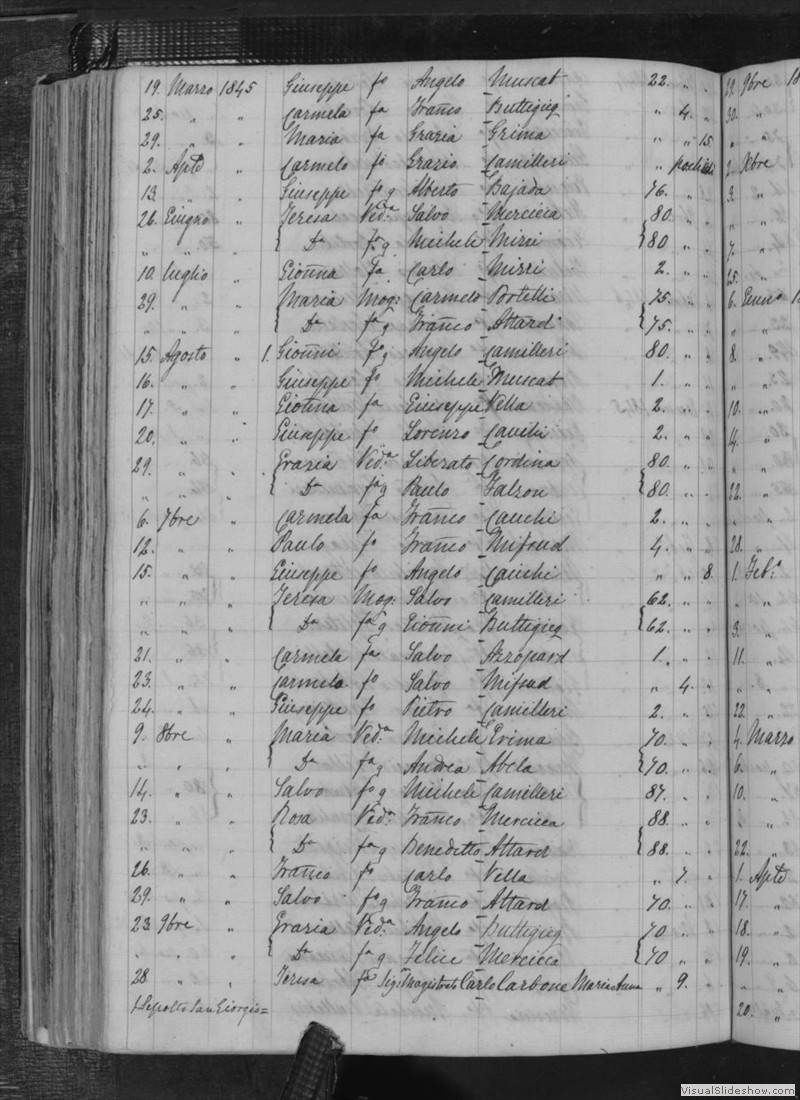 19. Marzo 1845 Giuseppe fo Angelo Muscat 22. " "
25. " " Carmela fa Franco Buttigieg " 4. "
29. " " Maria fa Grazia Grima " " 15.
2. Aple " Carmelo fo Grazio Camilleri "
13. " " Giuseppe fo g Alberto Bajada 76. " "
26. Giugno " Teresa Veda Salvo Mercieca 80. " "
" " " { Da fa g Michele Mizzi { 80 " "
10. Luglio " Gionna fa Carlo Mizzi 2. " "
29. " " Maria Mog: Carmelo Portelli 75. " "
" " " { Da fa g Franco Attard { 75. " "
15. Agosto " 1. Gionni fo g Angelo Camilleri 80. " "
16. " " Giuseppe fo Michele Muscat 1. " "
17. " " Gionna fa Giuseppe Vella 2. " "
20. " " Giuseppe fo Lorenzo Cauchi 2. " "
29. " " Grazia Veda Liberato Cordina 80. " "
" " " { Da fa g Paulo Falzon { 80. " "
6. 7bre " Carmela fa Franco Cauchi 2. " "
12. " " Paulo fo Franco Mifsud 4. " "
15. " " Giuseppe fo Angelo Cauchi " " 8.
" " " Teresa Mog: Salvo Camilleri 62. " "
" " " { Da fa g Gionni Buttigieg { 62. " "
21. " " Carmela fa Salvo Azzopard 1. " "
23. " " Carmelo fo Salvo Mifsud " 4. "
24. " " Giuseppe fo Pietro Camilleri 2. " "
9. 8bre " Maria Veda Michele Grima 70. " "
" " " { Da fa g Andrea Abela { 70. " "
14. " " Salvo fo g Michele Camilleri 87. " "
23. " " Rosa Veda Franco Mercieca 88. " "
" " " { Da fa g Benedetto Attard { 88. " "
26. " " Franco fo Carlo Vella " 7. "
29. " " Salvo fo g Franco Attard 70. " "
23. 9bre " Grazia Veda Angelo Buttigieg 70 " "
" " " { Da fa g Felice Mercieca { 70 " "
28. " " Teresa fa Sigr Magistrato Carlo Carbone Marianna " 9. "
1 Sepolto San Giorgio =
29. 9bre 18
30. "
" "
2. Xbre
3. "
7. "
25. "
6. Genno 1
8. "
" "
10. "
14. "
" "
22. "
" "
28. "
1. Feb.o
" "
3. "
11. "
" "
22. "
4. Marzo
6. "
10. "
" "
22. "
1. Aple
17. "
18. "
19. "
" "
20. "
VisualSlideshow.com